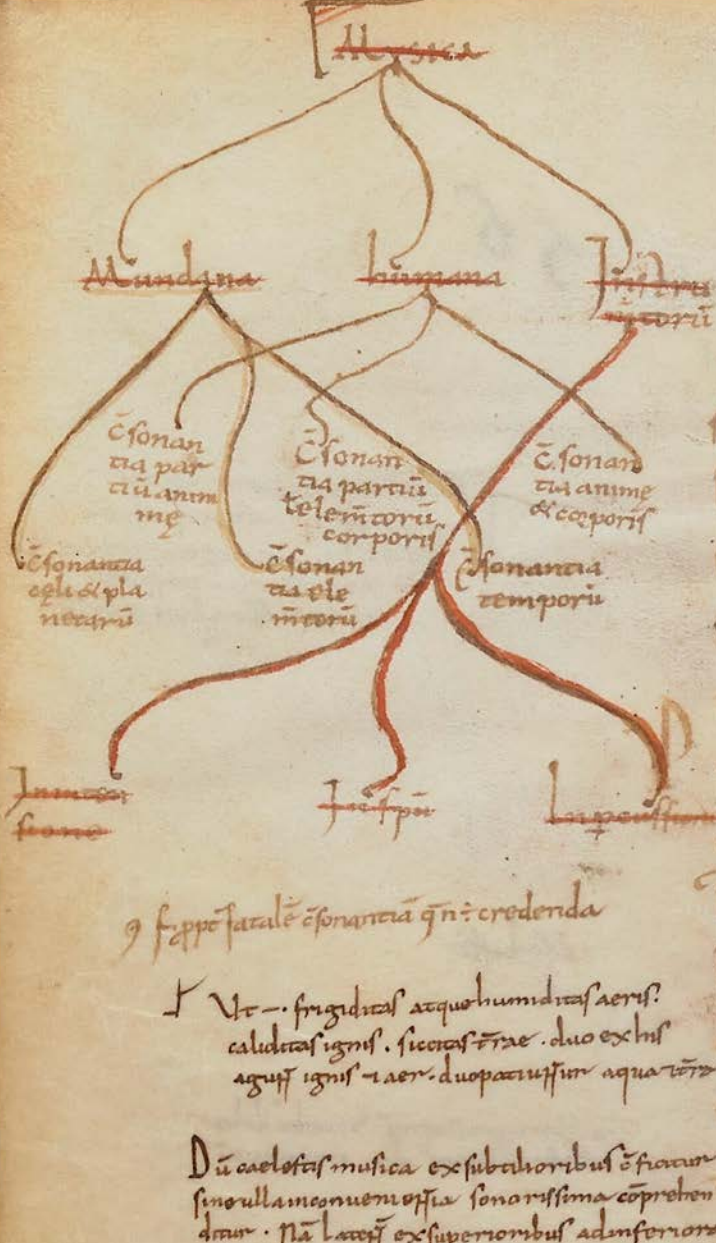 Musica
Mundana humana Instru
mtorū
c̄sonan
tia par
tiū anim
mę
c̄sonan
tia partiū
elem̄torū
corporis
c̄sonan
tia animę
& corporis
c̄sonantia
cęli & pla
netarū
c̄sonan
tia ele
m̄torū
c̄sonantia
temporū
In inten
sione
In sp̄u
In p̄cussione
c̄sonantiā credenda
Ut frigiditas atque humiditas aeris
caliditas ignis . siccitas t̄rae . duo ex his
agunt ignis aer . duo patiuntur aqua
Dū caelestis musica ex subtilioribus c̄ficitur
sine ulla inconvenientia sonorissima cōprehen
ditur . Nā ex superioribus ad inferiora